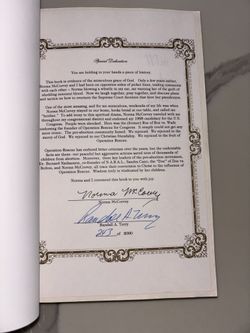 Special Dedication
You are holding in your hands a piece of history.
This book is evidence of the miraculous grace of God. Only a few years earlier,
Norma McCorvey and I had been on opposite sides of picket lines, trading
with each other - Norma blowing a whistle in my ear, me warning her of the guilt of
shedding innocent blood. Now we laugh together, pray together, and discuss plans
and tactics on how to overturn the Supreme Court decision that bore her pseudonym.
One of the most amazing, and for me humorous, weekends of my life was when
Norma McCorvey stayed in our home, broke bread at our table, and called me
"brother." To add irony to this spiritual drama, Norma McCorvey traveled with me
throughout my congressional district and endorsed my 1998 candidacy for the U.S.
Congress. People were shocked! Here was the (former) Roe of Roe vs. Wade
endorsing the founder of Operation Rescue for Congress. It simply could not get any
more ironic. The pro-abortion community howled. We rejoiced. We rejoiced in the
mercy of God. We rejoiced in our Christian friendship. We rejoiced in the fruit of
Operation Rescue.
Operation Rescue has endured bitter criticism over the years, but the undeniable
facts are these: our peaceful but aggressive actions saved tens of thousands of
children from abortion. Moreover, three key leaders of the pro-abortion movement,
Dr. Bernard Nathanson, co-founder of N.A.R.A.L., Sandra Cano, the "Doe" of Doe vs.
Bolton, and Norma McCorvey, all trace their conversion to Christ to the influence of
Operation Rescue. Wisdom truly is vindicated by her children.
Norma and I commend this book to you with joy.
Norma McCorvey
Norma McCorvey
Randall A. Terry
Randall A. Terry
of 2000